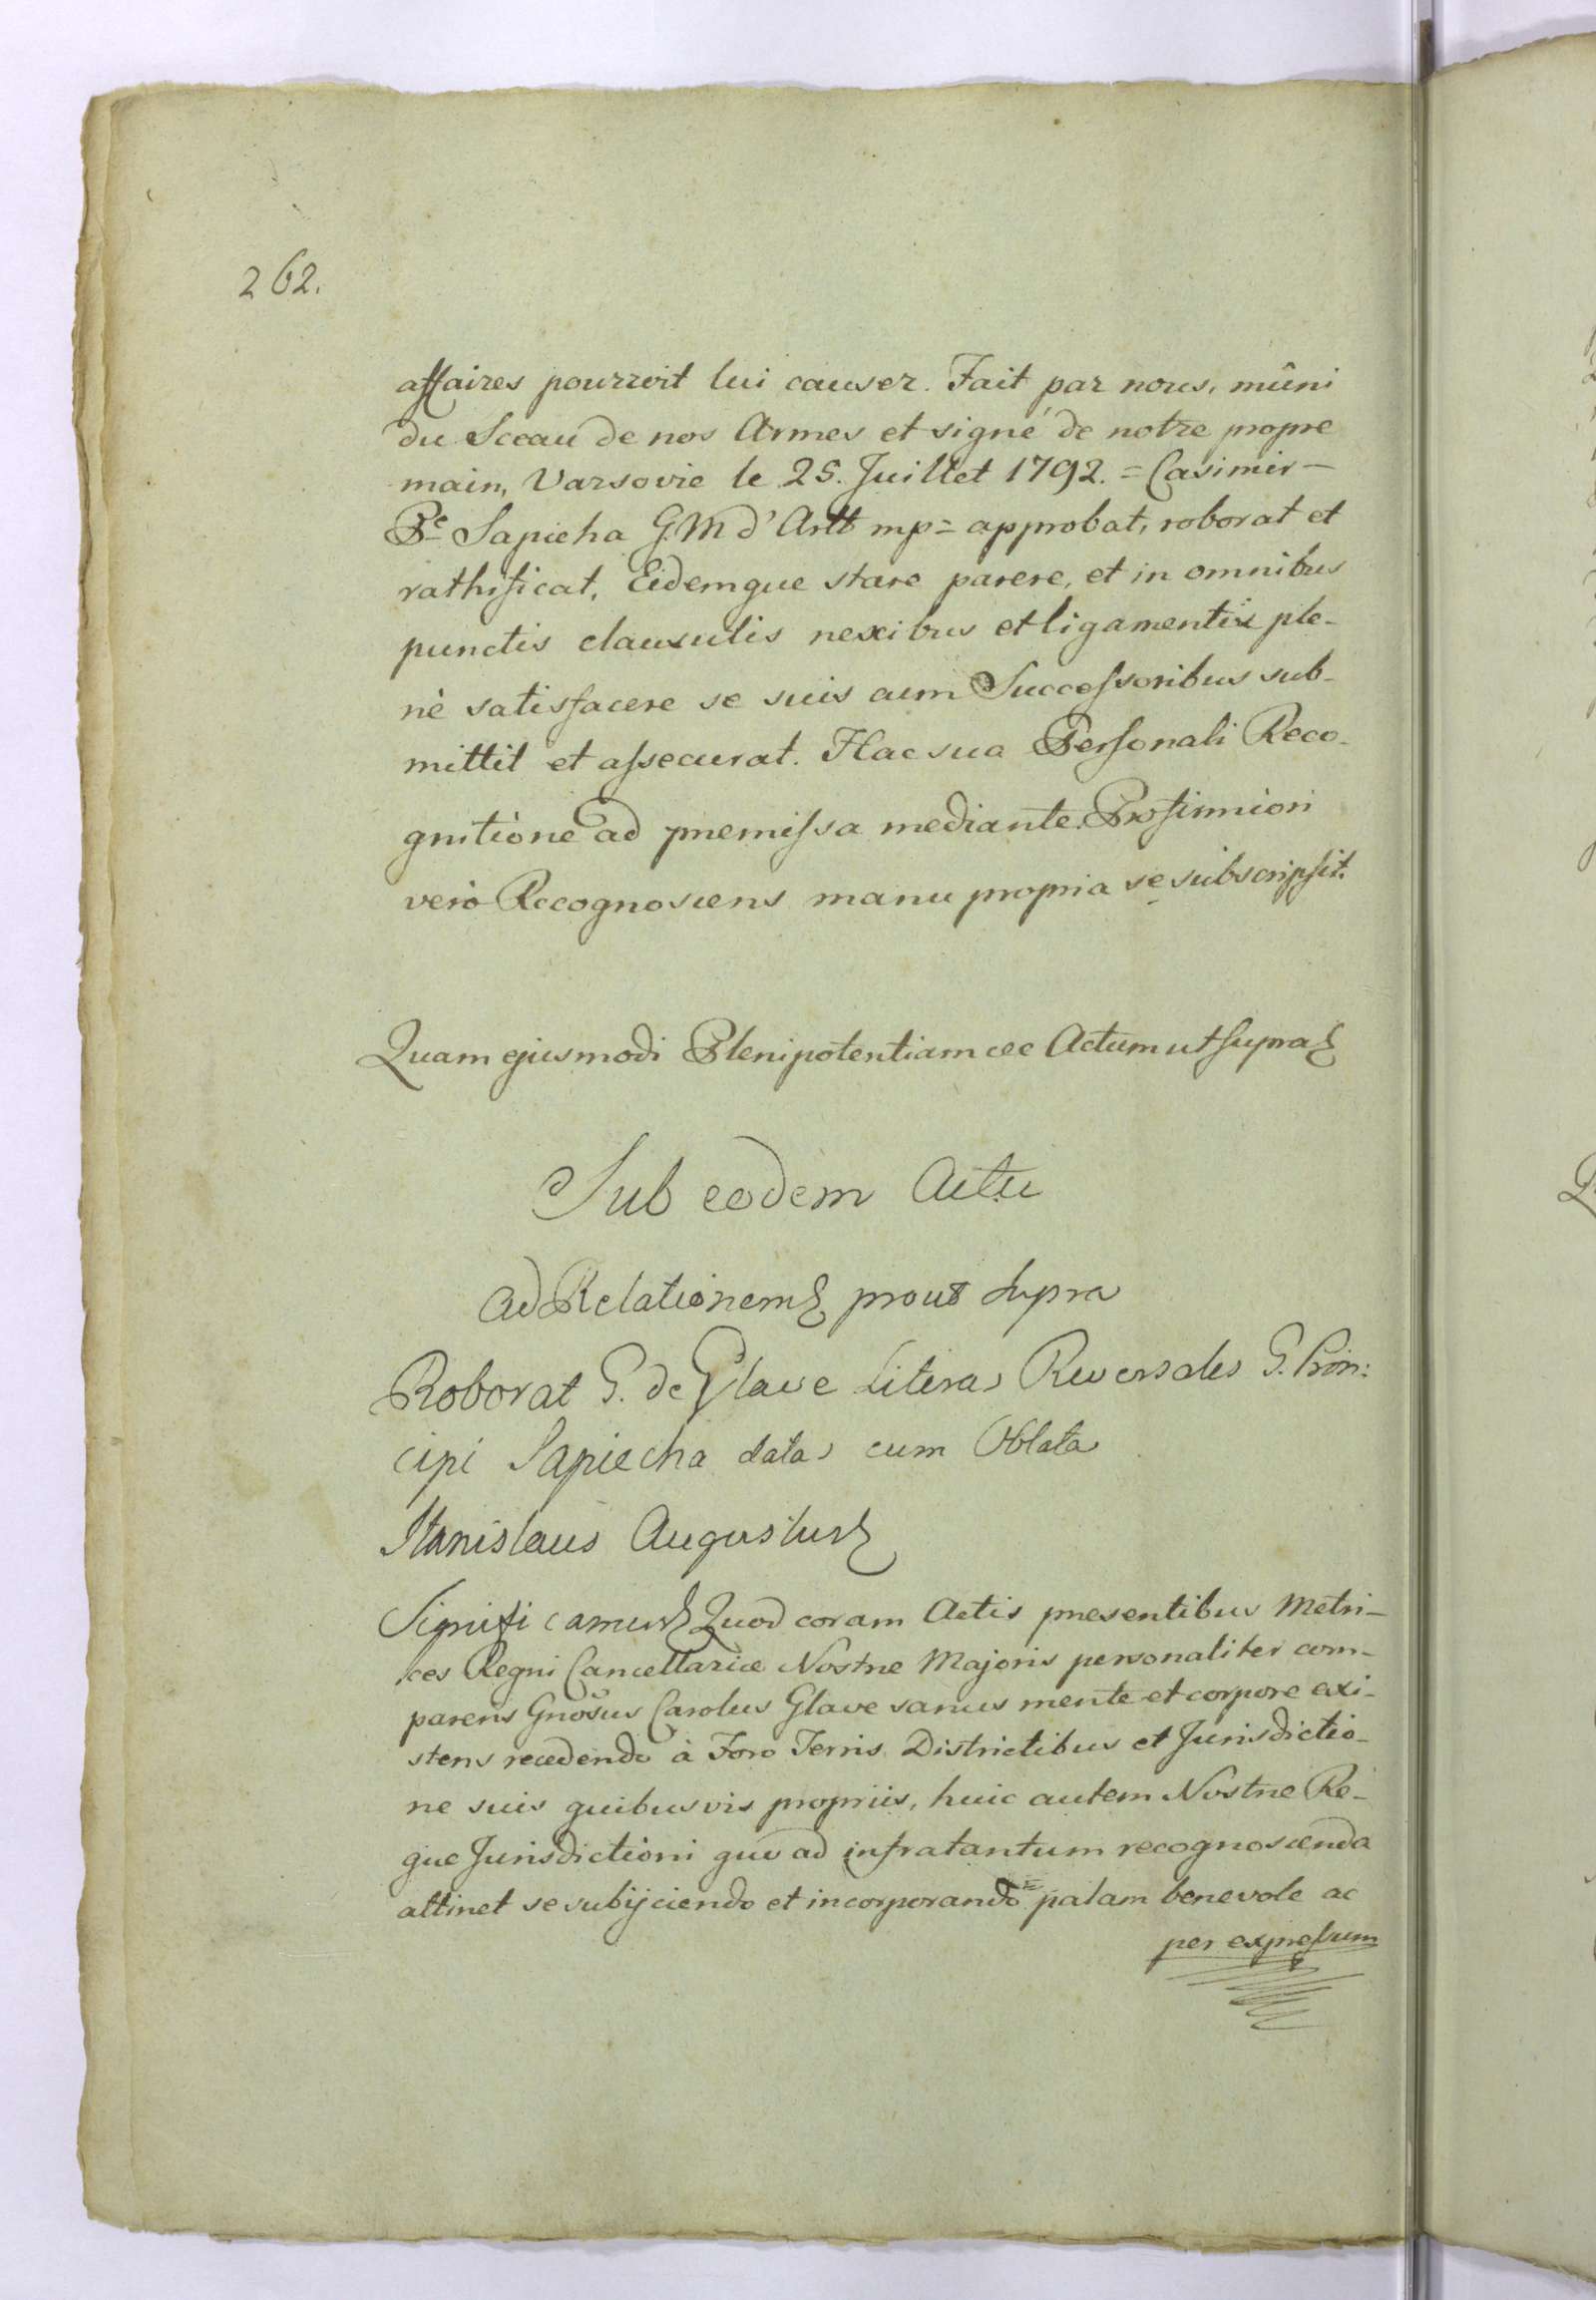 262.
affaires pourroit lui causer. Fait par nous, mûni
du Sceau de nos Armes et signé de notre propre
main, Varsovie le 25. Juillet 1792. = Casimir —
Pce Sapieha G. M d'Artt mp = approbat, roborat et
rathificat, Eidemque stare parere, et in omnibus
punctis clausulis nexibus et ligamentis ple-
nè satisfacere se suis cum Successoribus sub-
mittit et assecurat. Hac sua Personali Reco-
gnitione ad premissa mediante. Pro firmiori
verò Recognoscens manu propria se subscripsit.
Quam ejusmodi Plenipotentiam Actum ut supra
Sub eodem Actu
Ad Relationem prout supra
Roborat G. de Glave Literas Reversales G. Prin:
cipi Sapiecha datas cum Oblata
Stanislaus Augustus
Significamus Quod coram Actis presentibus Metri-
ces Regni Cancellariæ Nostre Majoris personaliter com-
parens Gnosus Carolus Glave sanus mente et corpore exi-
stens recedendo à Foro Terris Districtibus et Jurisdictio-
ne suis quibusvis propriis, huic autem Nostre Re-
gie Jurisdictioni quo ad infratantum recognoscenda
attinet se subijciendo et incorporando palam benevole ac
per expressum